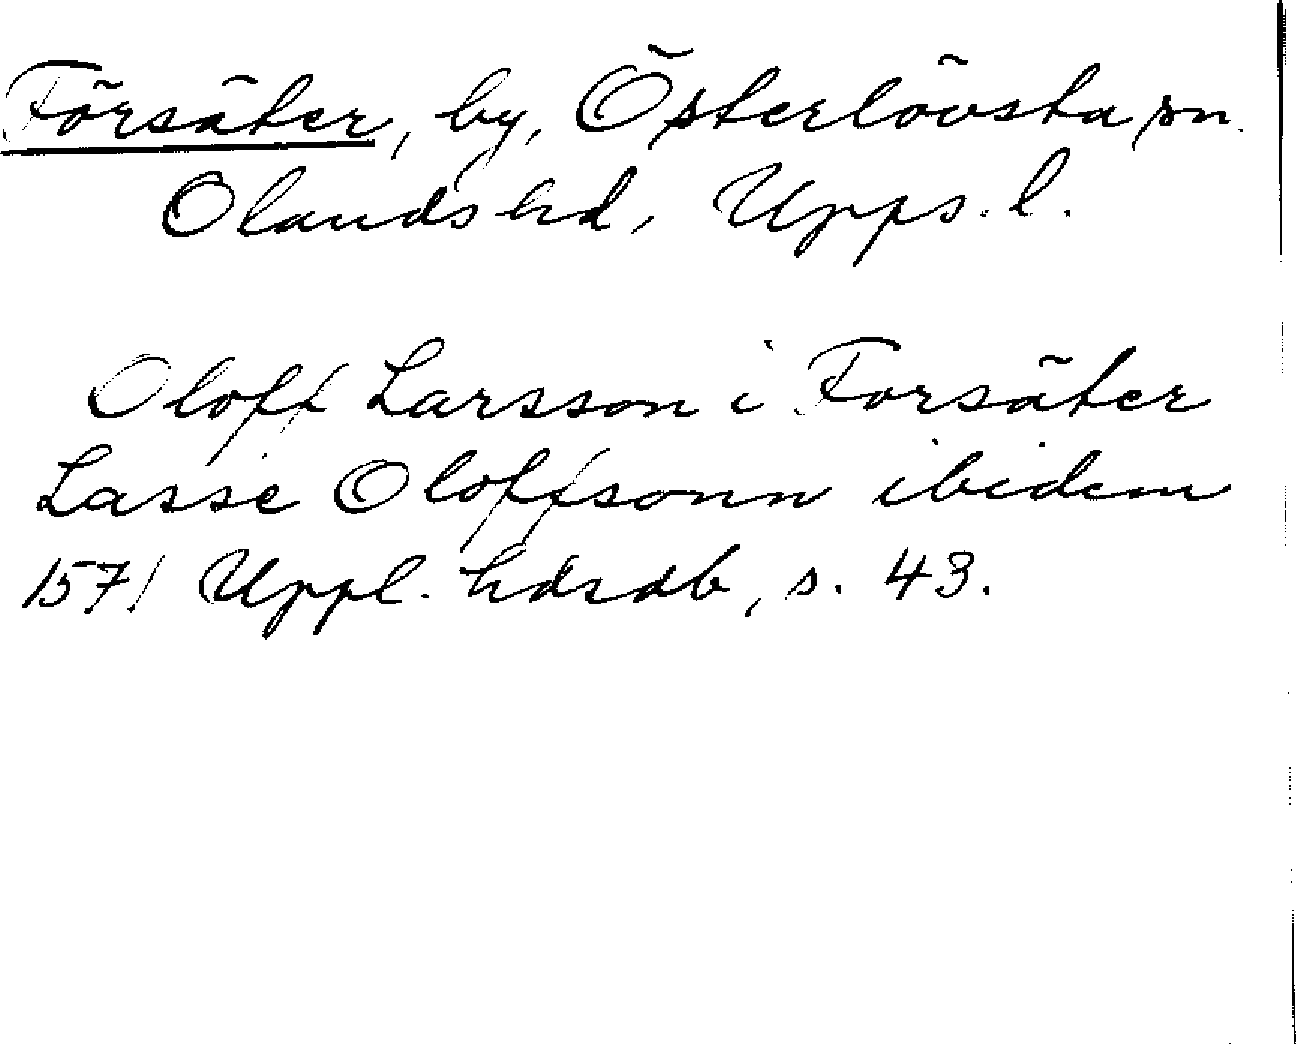 Försäter, by, Österlövsta sn.
Olands hd, Upps. l.
Oloff Larsson i Forsäter
Lasse Oloffsonn ibidem
1571 Uppl. hdrdb, s. 43.